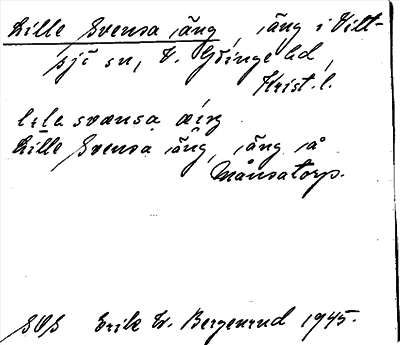 Lille Svensa äng, äng i Vitt-
sjö sn, V. Göinge hd,
Krist. l.
lɪla svænsa æŋ
Lille Svensa äng, äng å
Månsatorp.
SOS Erik W. Bergenrud 1945.